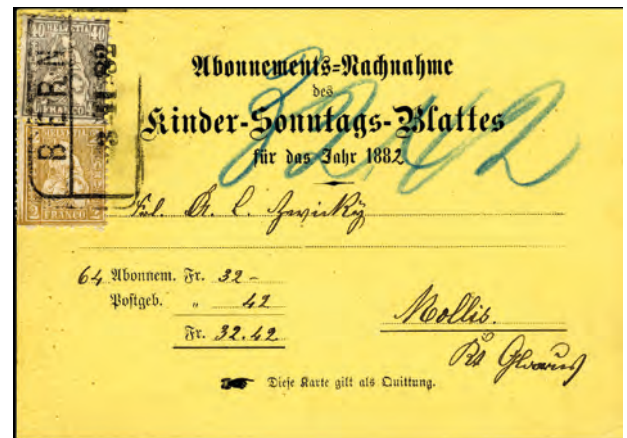 40 HELVETIA 40
FRANCO
BERN
HELVETIA
2 FRANCO 2
Abonnements-Nachnahme
des
Kinder-Sonntags-Blattes
für das Jahr 1882
32.42
Frl. A. C. Zwicky
64 Abonnem. Fr. 32-
Postgeb. " 42
Fr. 32.42
Mollis.
Kt Glarus
Diese Karte gilt als Quittung.